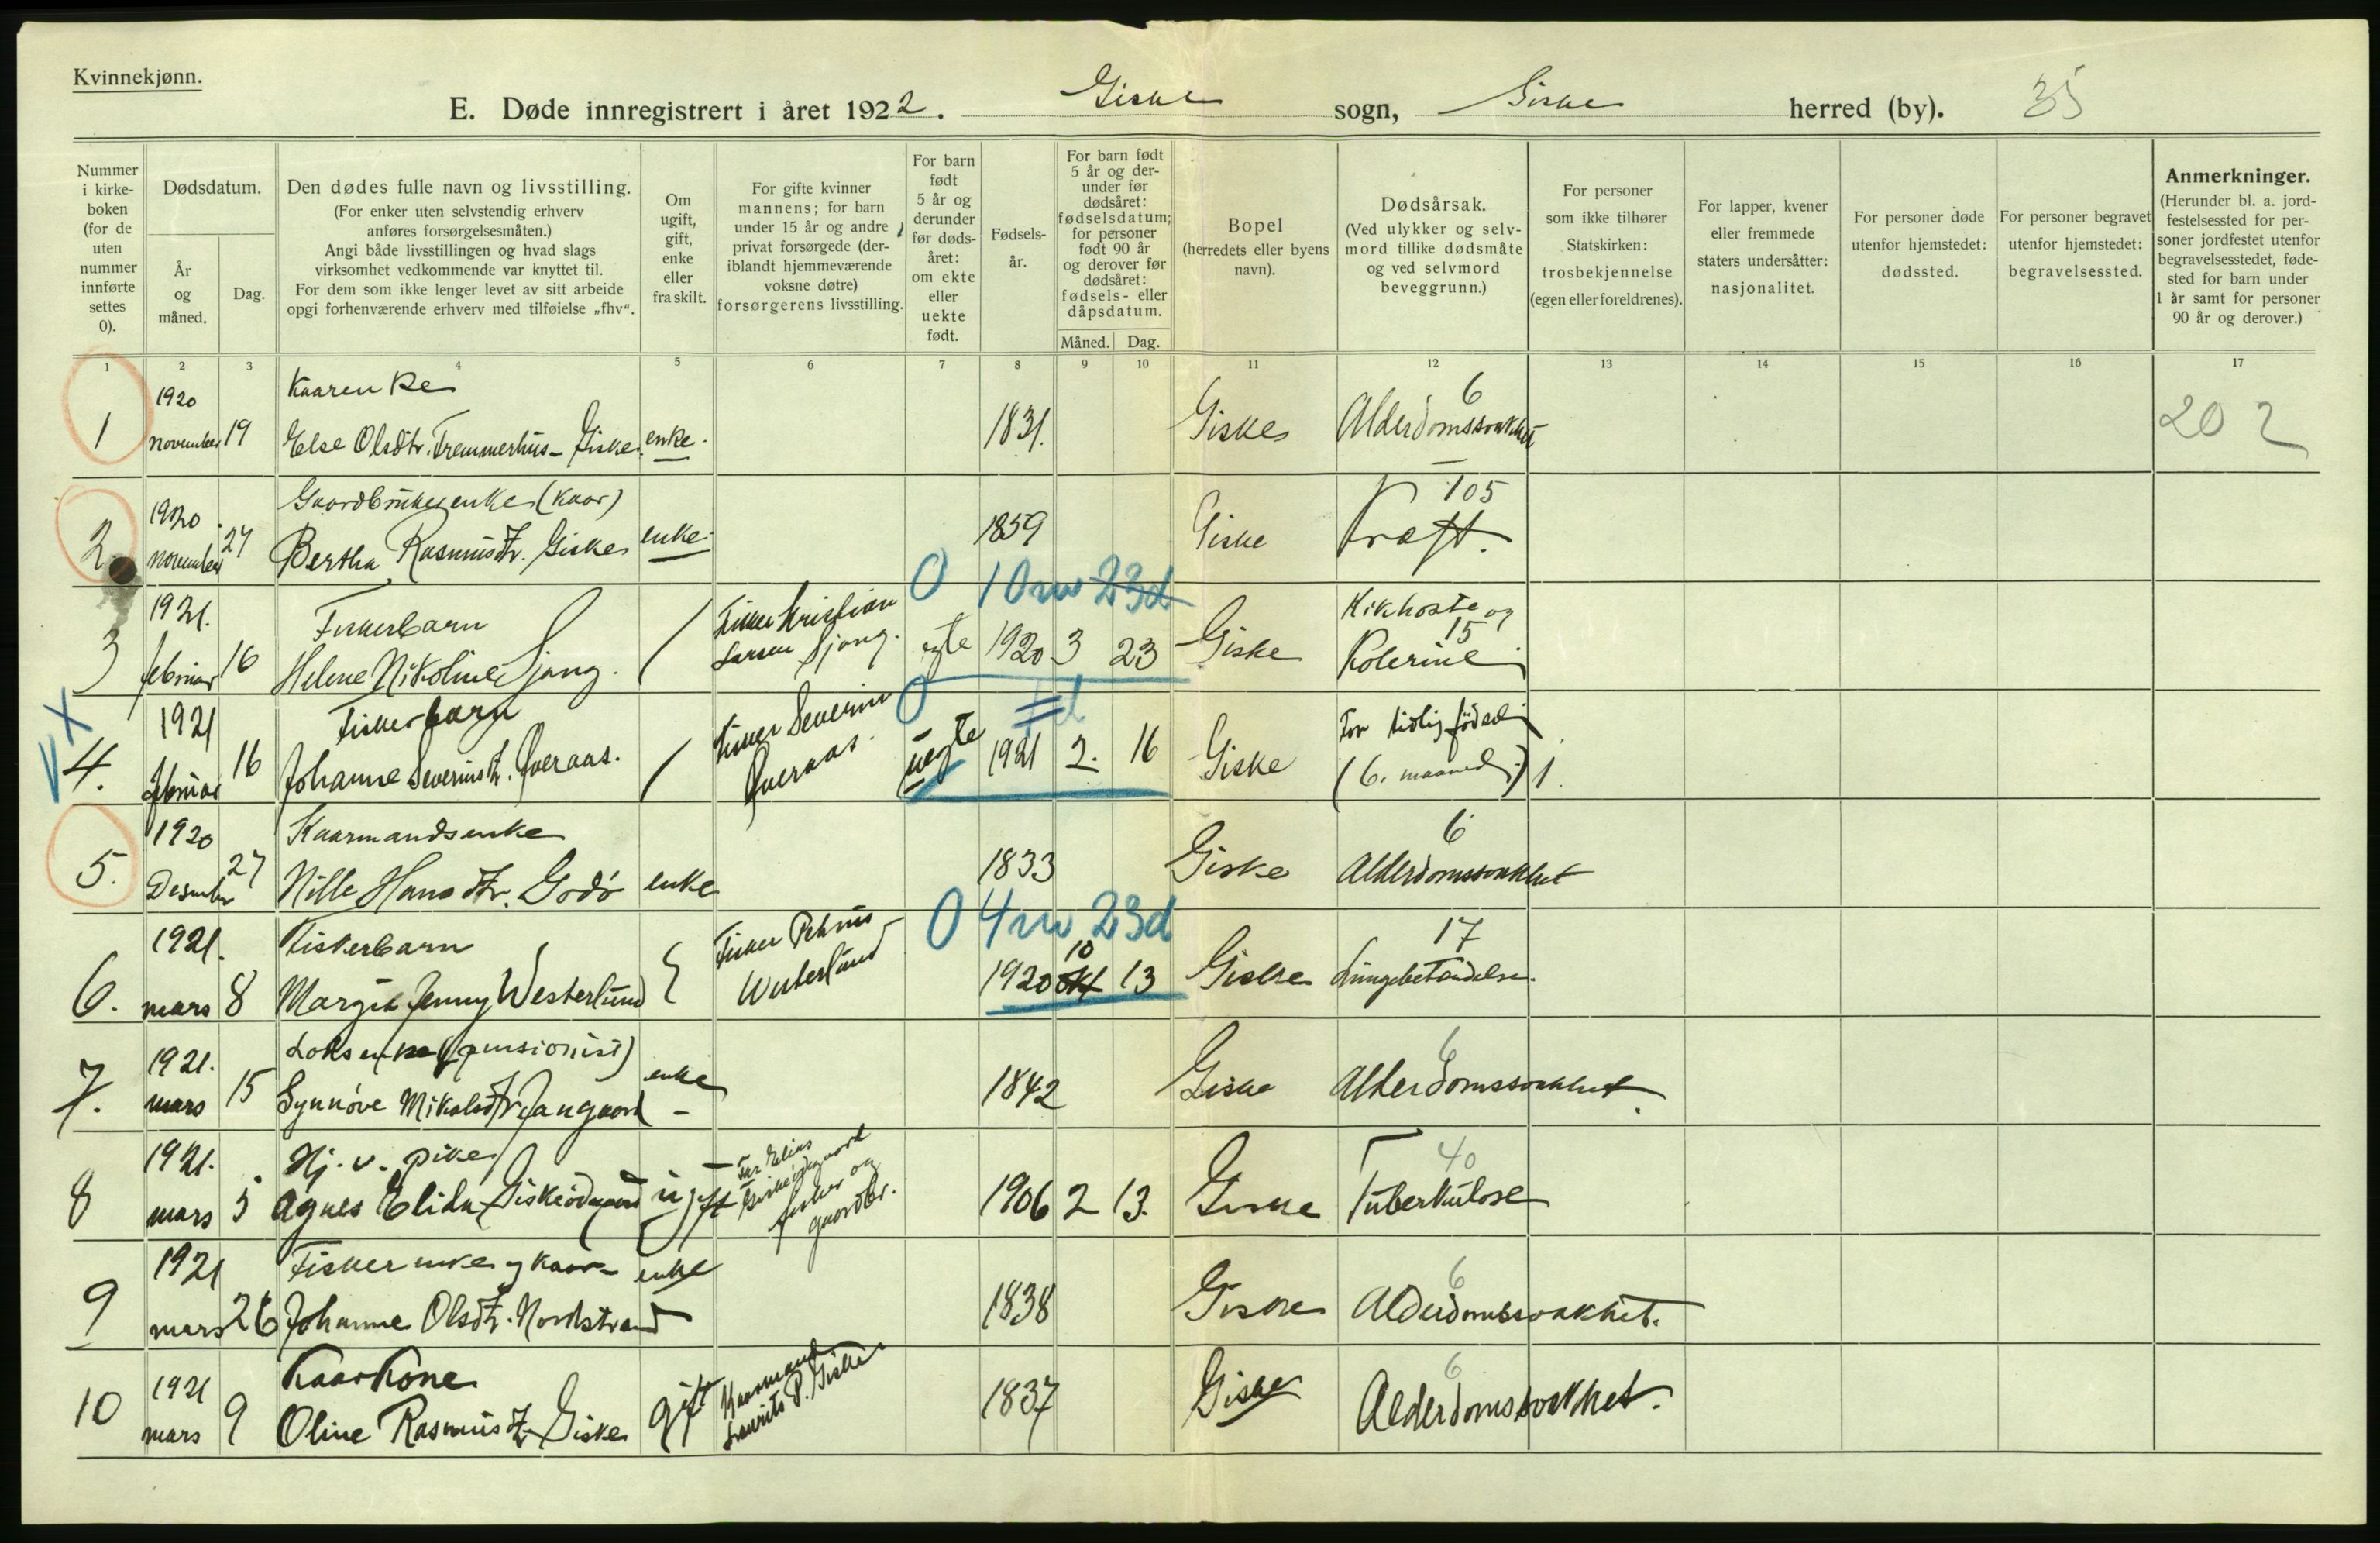 Kvinnekjønn.
E. Døde innregistrert i året 1922. Giske sogn, Giske herred (by). 35
Nummer i kirkeboken (for de uten nummer innførte settes 0).
Dødsdatum.
År og måned.
Dag.
Den dødes fulle navn og livsstilling.
(For enker uten selvstendig erhverv anføres forsørgelsesmåten.)
Angi både livsstillingen og hvad slags virksomhet vedkommende var knyttet til.
For dem som ikke lenger levet av sitt arbeide opgi forhenværende erhverv med tilføielse „fhv“.
Om ugift, gift, enke eller fraskilt.
For gifte kvinner mannens; for barn under 15 år og andre privat forsørgede (deriblandt hjemmeværende voksne døtre) forsørgerens livsstilling.
For barn født 5 år og derunder før dødsåret: om ekte eller uekte født.
Fødselsår.
For barn født 5 år og derunder før dødsåret: fødselsdatum; for personer født 90 år og derover før dødsåret: fødsels- eller dåpsdatum.
Måned. Dag.
Bopel (herredets eller byens navn).
Dødsårsak.
(Ved ulykker og selvmord tillike dødsmåte og ved selvmord beveggrunn.)
For personer som ikke tilhører Statskirken: trosbekjennelse (egen eller foreldrenes).
For lapper, kvener eller fremmede staters undersåtter: nasjonalitet.
For personer døde utenfor hjemstedet: dødssted.
For personer begravet utenfor hjemstedet: begravelsessted.
Anmerkninger.
(Herunder bl. a. jordfestelsessted for personer jordfestet utenfor begravelsesstedet, fødested for barn under 1 år samt for personer 90 år og derover.)
1 2 3 4 5 6 7 8 9 10 11 12 13 14 15 16 17
1920 Kaarenke 6
1 november 19 Else Olsdtr. Fremmerhus- Giske. enke. 1831. Giske Alderdomssvakhet 20 2
1920 Gaardbrukerenke (Kaar) 105
2. november 27 Bertha Rasmusdtr. Giske enke. 1859 Giske Kræft.
1921. Fiskerbarn Fisker Kristian 0 10 m 23 d Kikhoste og
3 februar 16 Helene Nikoline Sjong. / Larsen Sjong. egte 1920 3 23 Giske 15 Kolerine
V X 1921 Fiskerbarn Fisker Severin 0 For tidlig födsel
4. februar 16 Johanne Severinsdtr. Överaas. / Överaas. uegte 1921 2. 16 Giske (6. maaned) 1.
1920 Kaarmandsenke 6
5. Desember 27 Nille Hansdtr. Godö enke 1833 Giske Alderdomssvakhet
1921. Fiskerbarn Fisker Petrus 0 4 m 23 d 10 17
6. mars 8 Margit Jenny Westerlund Westerlund 1920 okt 13 Giske Lungebetændelse.
1921. Losenke (pensionist) 6
7. mars 15 Synnöve Mikalsdtr Jangaard enke - 1842 Giske Alderdomssvakhet.
1921. Hj. v. pike Far Elias Giskeödegaard 40
8 mars 5 Agnes Elida Giskeödegaard ugift fisker og gaardbr. 1906 2 13. Giske Tuberkulose
1921 Fiskerenke og kaar- enke 6
9 mars 26 Johanne Olsdtr. Nordstrand 1838 Giske Alderdomssvakhet.
1921 Kaarkone Kaarmand 6
10 mars 9 Oline Rasmusdtr Giske gift Laurits P. Giske 1837 Giske Alderdomssvakhet.